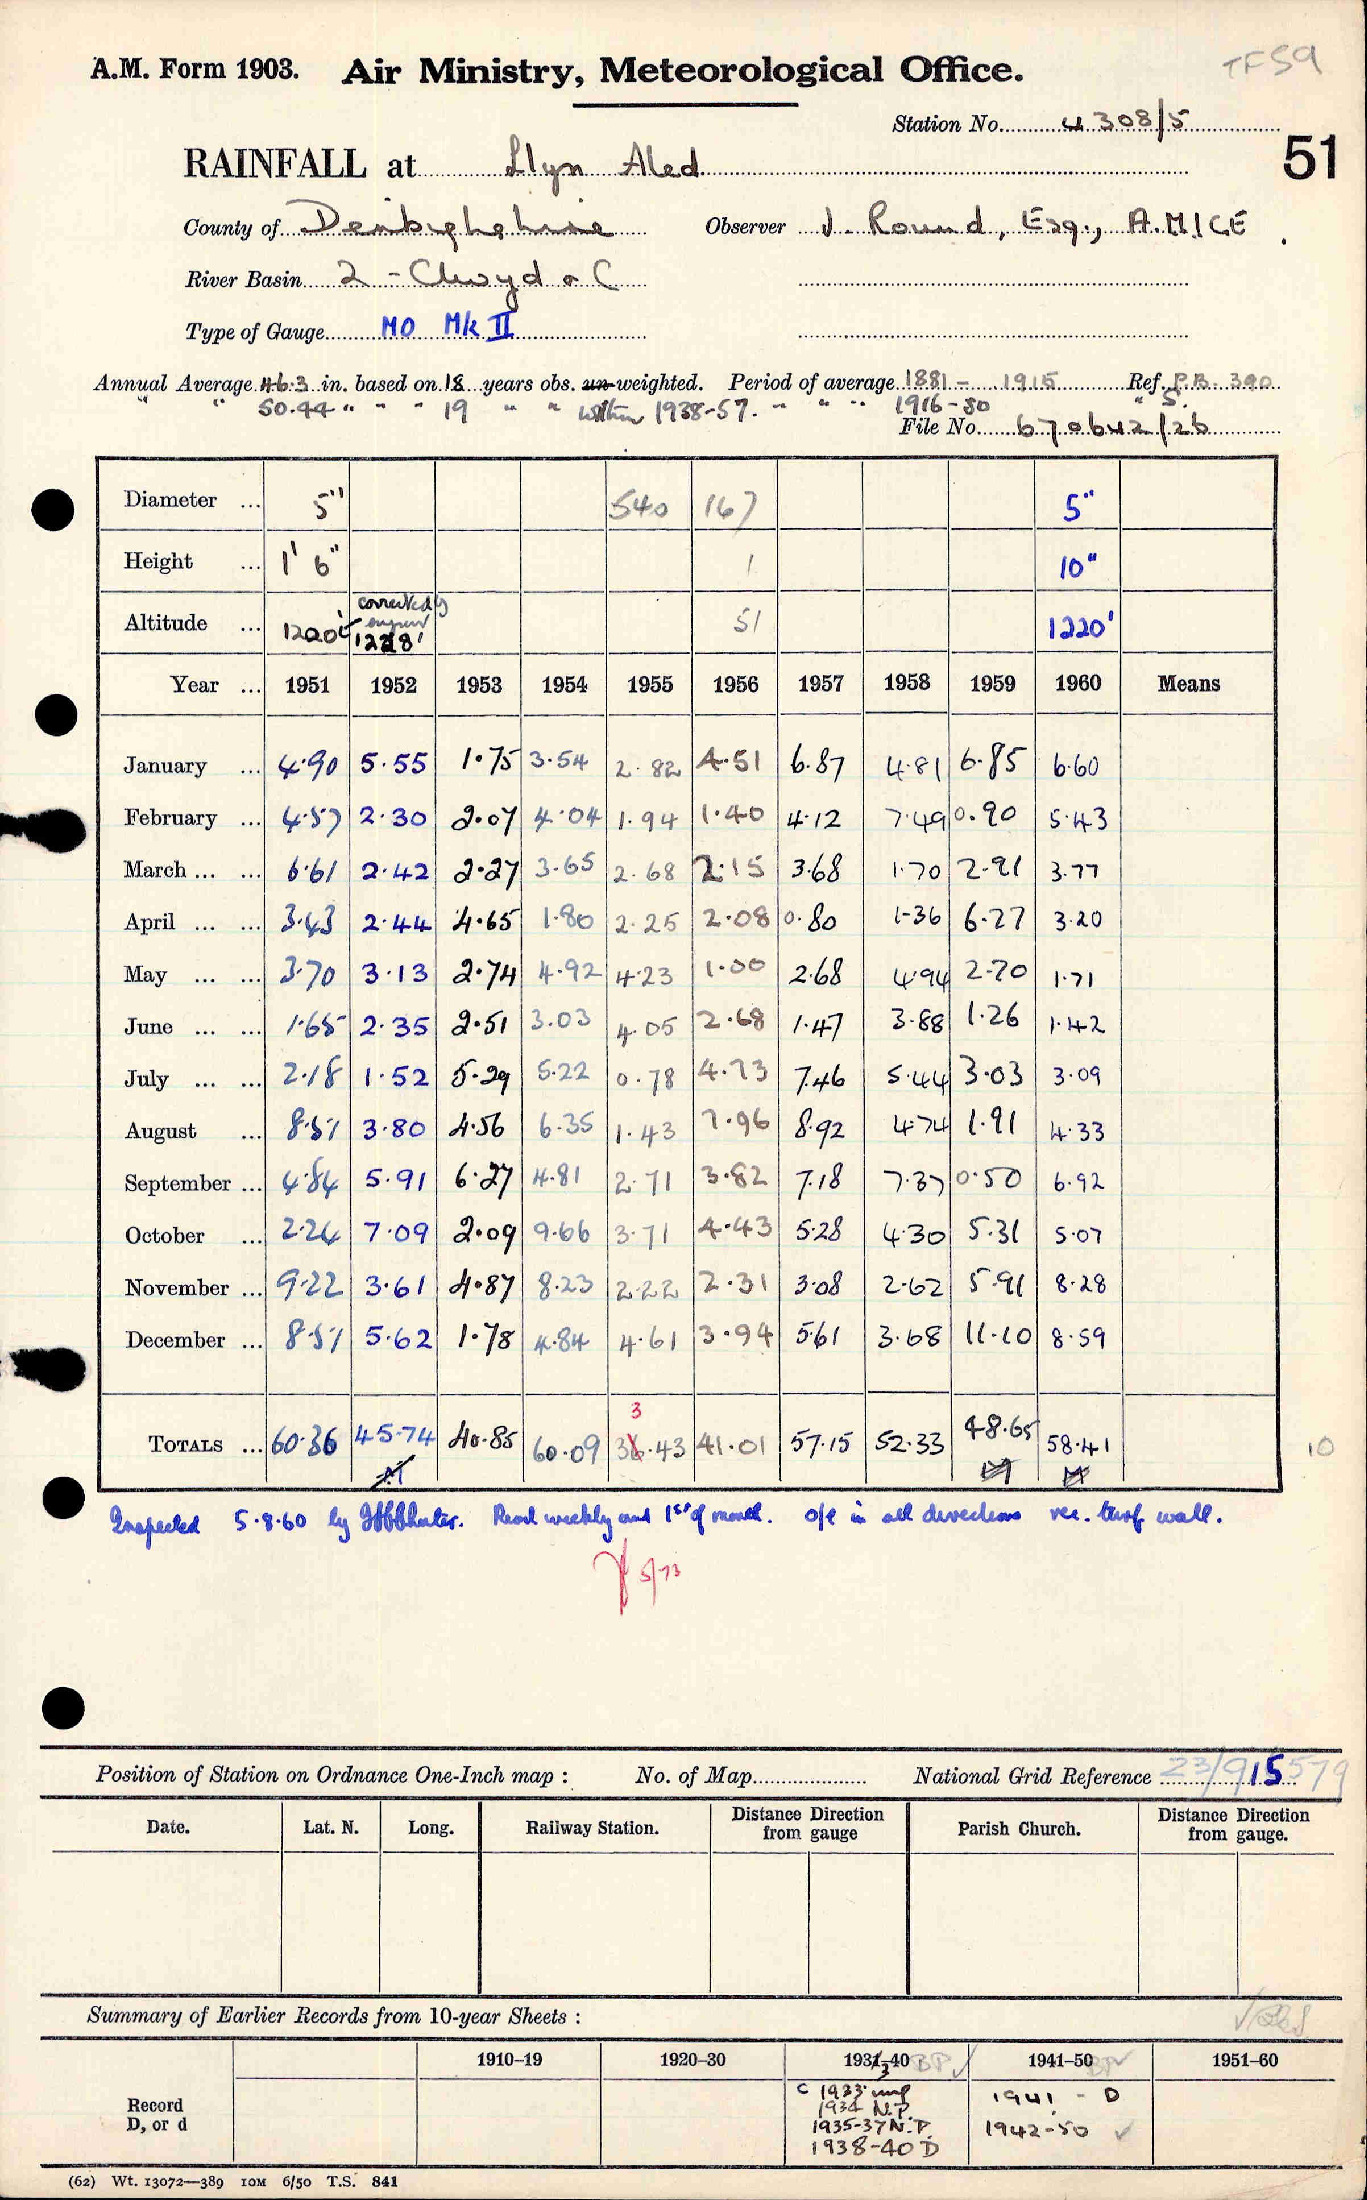 A.M. Form 1903. Air Ministry, Meteorological Office. TF59
Station No. 4308/5
51
RAINFALL at Llyn Aled
County of Denbighshire Observer J. Round, Esq., A.M.I.C.E.
River Basin 2 - Clwyd & C
Type of Gauge MO Mk II
Annual Average 46.3 in. based on 18 years obs. un-weighted. Period of average 1881 - 1915 Ref. P.B. 390
" " 50.44 " " " 19 " " within 1938-57. " " " 1916-50 " S.
File No. 670642/26
Diameter ... 5" 540 167 5"
Height ... 1' 6" 1 10"
Altitude ... 1220' corrected by 1228' 51 1220'
Year ... 1951 1952 1953 1954 1955 1956 1957 1958 1959 1960 Means
January ... 4.90 5.55 1.75 3.54 2.82 4.51 6.87 4.81 6.85 6.60
February ... 4.57 2.30 2.07 4.04 1.94 1.40 4.12 7.49 0.90 5.43
March ... ... 6.61 2.42 2.27 3.65 2.68 2.15 3.68 1.70 2.91 3.77
April ... ... 3.43 2.44 4.65 1.80 2.25 2.08 0.80 1.36 6.27 3.20
May ... ... 3.70 3.13 2.74 4.92 4.23 1.00 2.68 4.94 2.70 1.71
June ... ... 1.65 2.35 2.51 3.03 4.05 2.68 1.47 3.88 1.26 1.42
July ... ... 2.18 1.52 5.29 5.22 0.78 4.73 7.46 5.44 3.03 3.09
August ... 8.51 3.80 4.56 6.35 1.43 7.96 8.92 4.74 1.91 4.33
September ... 4.84 5.91 6.27 4.81 2.71 3.82 7.18 7.37 0.50 6.92
October ... 2.24 7.09 2.09 9.66 3.71 4.43 5.28 4.30 5.31 5.07
November ... 9.22 3.61 4.87 8.23 2.22 2.31 3.08 2.62 5.91 8.28
December ... 8.51 5.62 1.78 4.84 4.61 3.94 5.61 3.68 11.10 8.59
3
TOTALS ... 60.36 45.74 40.85 60.09 36.43 41.01 57.15 52.33 48.65 58.41 10
M M M
Inspected 5.8.60 by Read weekly and 1st of month. O/E in all directions rec. turf wall.
5/73
Position of Station on Ordnance One-Inch map : No. of Map National Grid Reference 23/915579
Date. Lat. N. Long. Railway Station. Distance Direction from gauge Parish Church. Distance Direction from gauge.
Summary of Earlier Records from 10-year Sheets :
1910–19 1920–30 1931–40 BP 1941–50 BP 1951–60
Record
D, or d
C 1933
1934 N.P.
1935-37 N.P.
1938-40 D
1941 - D
1942-50
(62) Wt. 13072—389 10M 6/50 T.S. 841